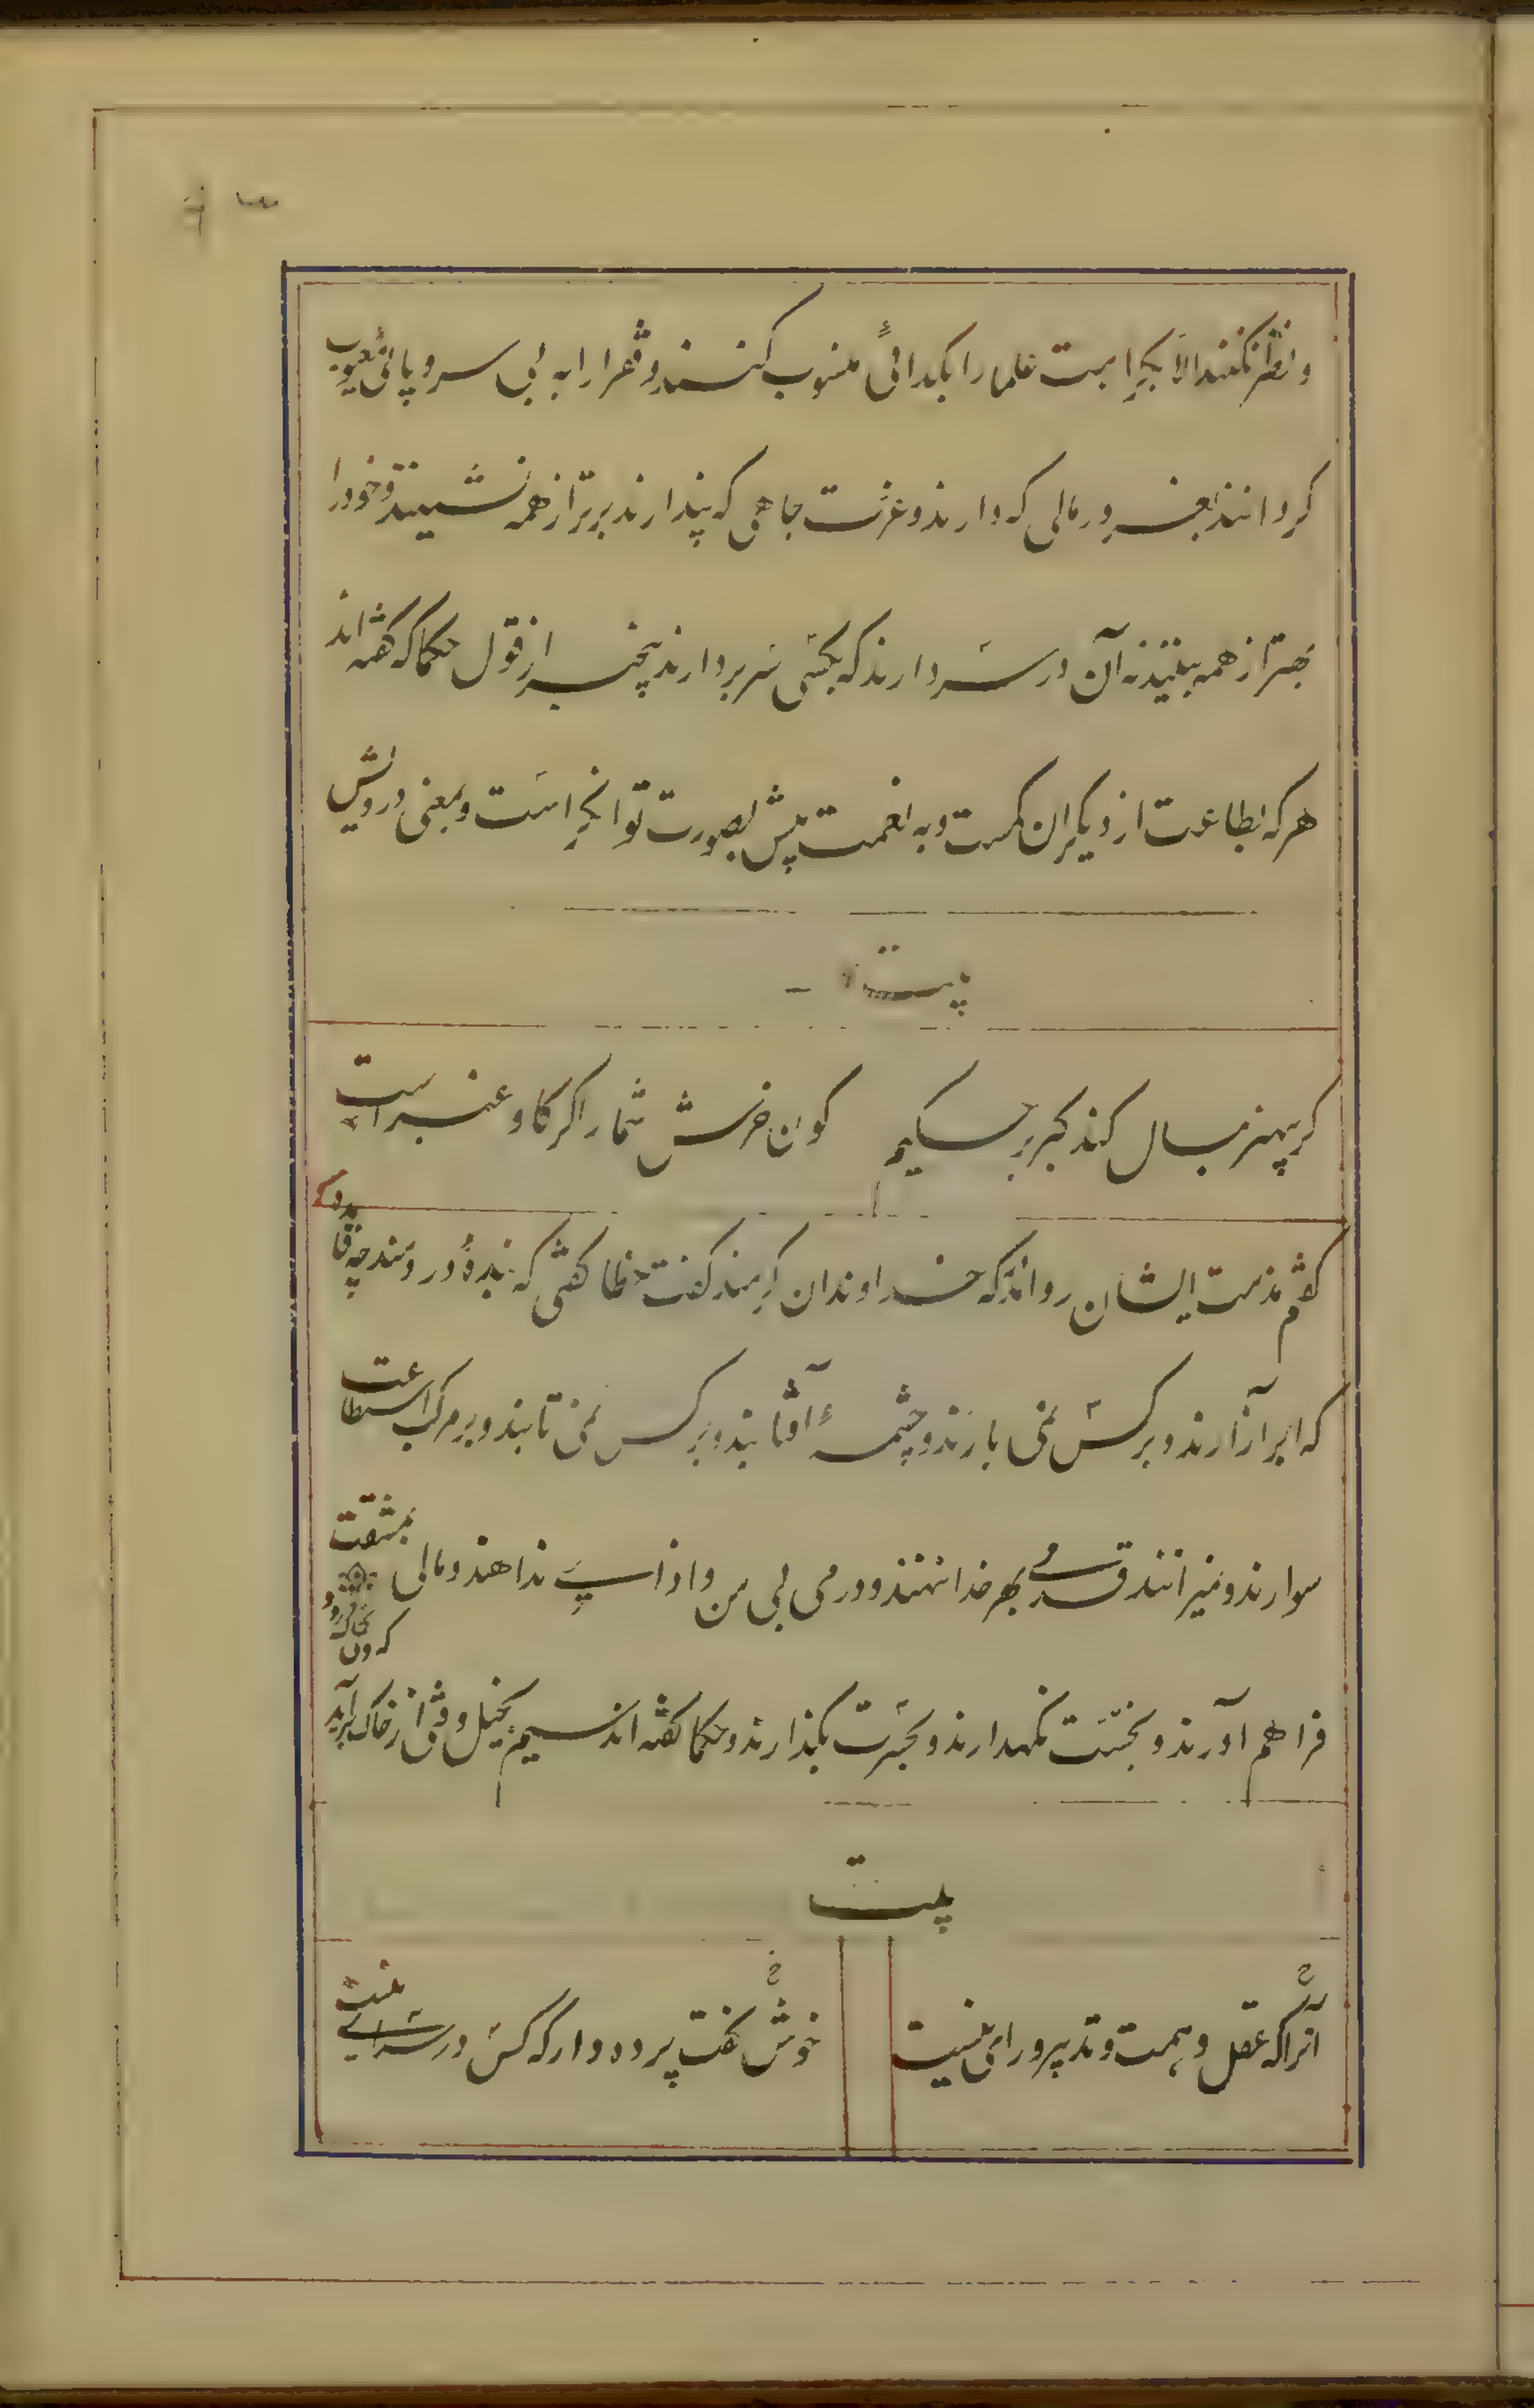 و نظر نکنند الا بکراهت علما را بکدائی منسوب کنند و فقرا را به بی سر و پائی معیوب
کردانند بغرور مالی که دارند و عزت جاهی که پندارند برتر از همه نشینند و خود را
بهتر از همه بینند نه آن در سر دارند که بکسی سر بر دارند بیخبر از قول حکما که کفته اند
هر که بطاعت از دیکران کمست و به نعمت بیش بصورت توانکر است و بمعنی درویش
بیت
کر بی‌هنر بمال کند کبر بر حکیم
کون خرش شمار اکر کاو عنبر است
کفتم مذمت ایشان روا مدار که خداوندان کرمند کفت خطا کفتی که بندهٔ درمند چه فایده
که ابر آزارند و بر کس نمی بارند و چشمهٔ آفتابند و بر کس نمی تابند و بر مرکب استطاعت
سوارند و نمیرانند قدمی بهر خدا ننهند و درمی بی من و اذا ندهند و مالی بمشقت
فراهم آورند و بخست نکهدارند و بحسرت بکذارند و حکما کفته اند سیم بخیل وقتی از خاک برآید
که وی بخاک رود
بیت
آنرا که عقل و همت و تدبیر و رای نیست
خوش کفت پرده دار که کس در سرای نیست